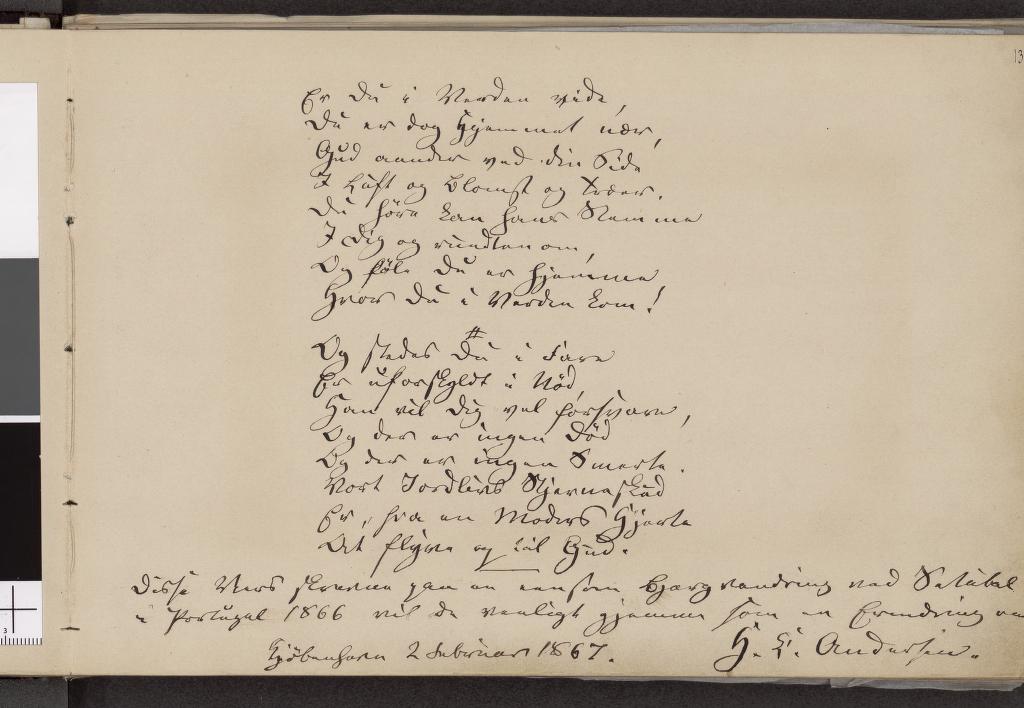 13
Er Du i Verden vide,
Du er dog Hjemmet nær,
Gud aander ved din Side
I Luft og Blomst og Træer.
Du høre kan hans Stemme
I Dig og rundten om,
Og føle Du er hjemme
Hvor Du i Verden kom!
#
Og stedes Du i Fare
Er uforskyldt i Nød,
Han vil Dig vel forsvare,
Og der er ingen Død
Og der er ingen Smerte.
Vort Jordlivs Stjerneskud
Er, fra en Moders Hjerte
At flyve op til Gud.
Disse Vers skrevne paa en eensom Bjergvandring ved Setubal
i Portugal 1866 vil De venligt gjemme som en Erindring om
H. C. Andersen.
Kjøbenhavn 2 Februar 1867.
3